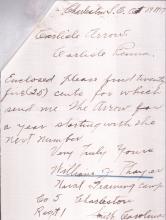 Charleston S.C. Oct 19 1917
Carlisle Arrow
Carlisle Penna.
Enclosed please find twenty
five (25) cents for which
send me The Arrow for
a year starting with the
next number
Very Truly Yours
William J. Thayer
Naval Training Camp
Co 5 Charleston
Regt 1 South Carolina